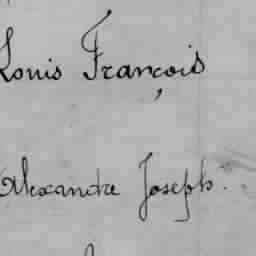 Louis François
Alexandre Joseph.